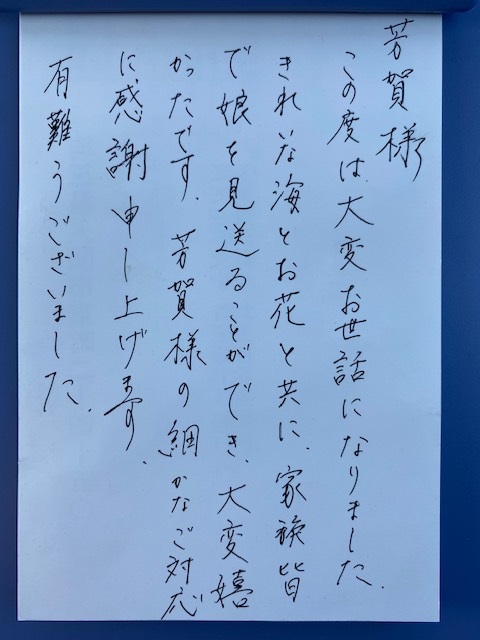 芳賀様
この度は、大変お世話になりました。
きれいな海とお花と共に、家族皆
で娘を見送ることができ、大変嬉
かったです。芳賀様の細かなご対応
に感謝申し上げます。
有難うございました。